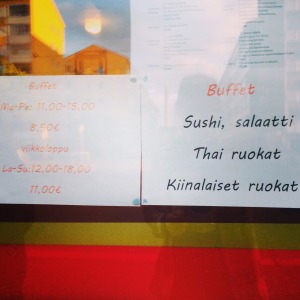 Buffet
Ma-Pe: 11,00-15,00
8,50€
viikkoloppu
La-Su:12,00-18,00
11,00€
Buffet
Sushi, salaatti
Thai ruokat
Kiinalaiset ruokat